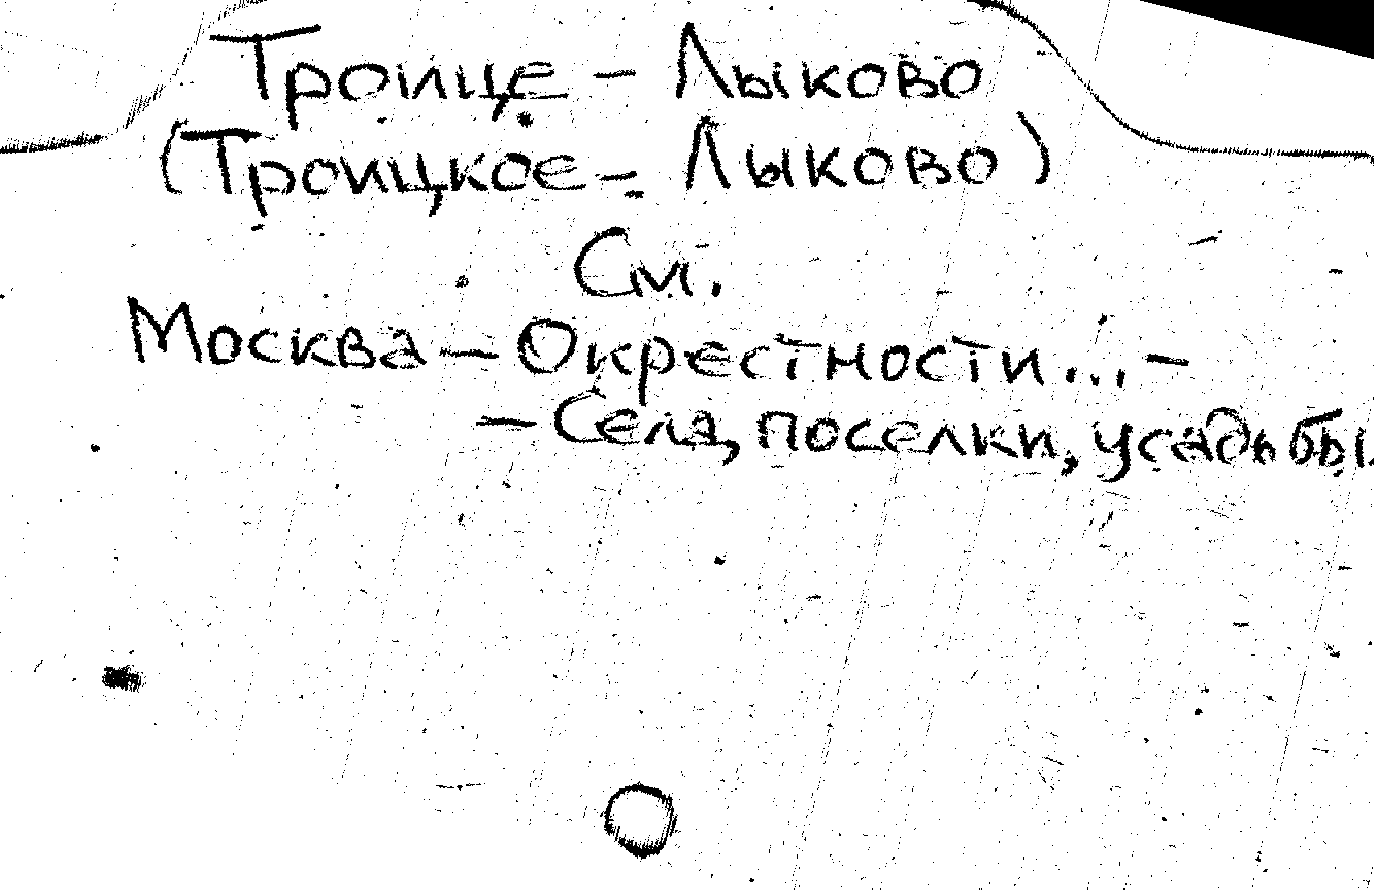 Троице - Лыково
(Троицкое - Лыково)
См.
Москва - Окрестности... -
- Села, поселки, усадьбы.